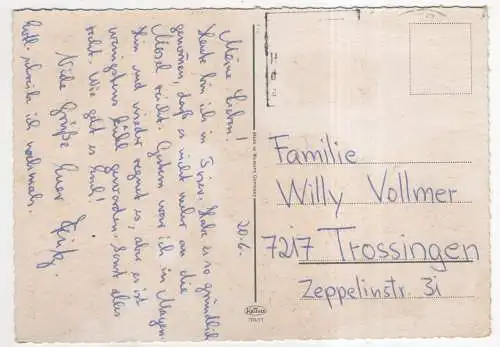 20.6.
Meine Lieben!
Heute bin ich in Trier. Habe es so gründlich
genommen, daß es nicht mehr an die
Mosel reicht. Gestern war ich in Mayen.
Hin und wieder regnet es, aber es ist
wenigstens kühl geworden. Sonst alles
recht. Wie geht es Euch!
Viele Grüße Euer
schreibe ich nochmals.
Familie
Willy Vollmer
7217 Trossingen
Zeppelinstr. 31